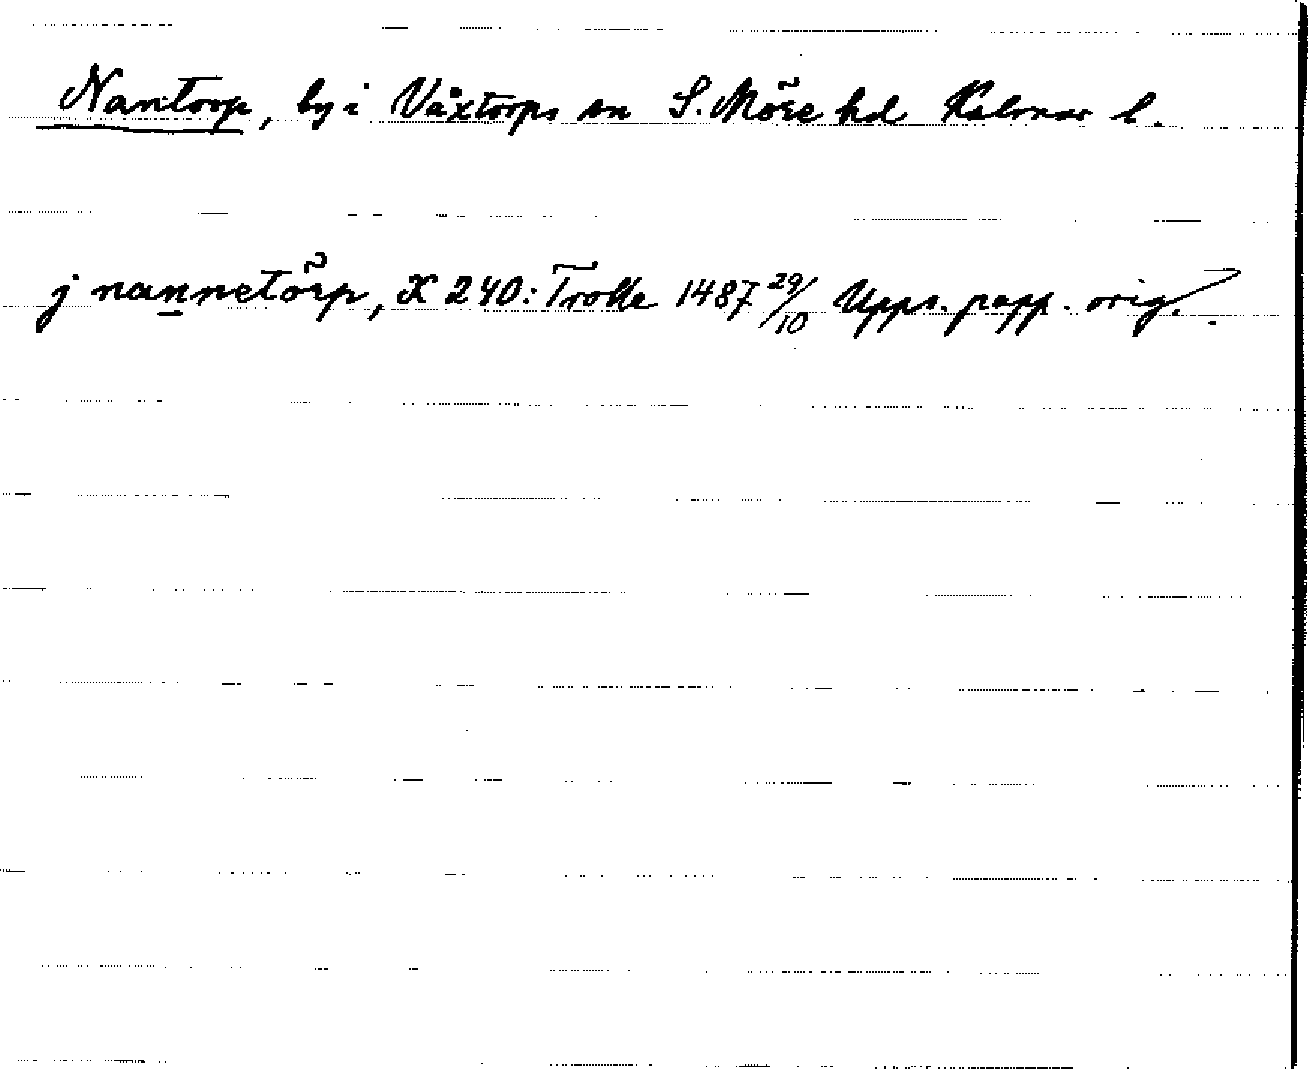 Nantorp, by i Växtorps sn S. Möre hd Kalmar l.
j nannetörp, X 240: Trolle 1487 29/10 Upps. papp. orig.